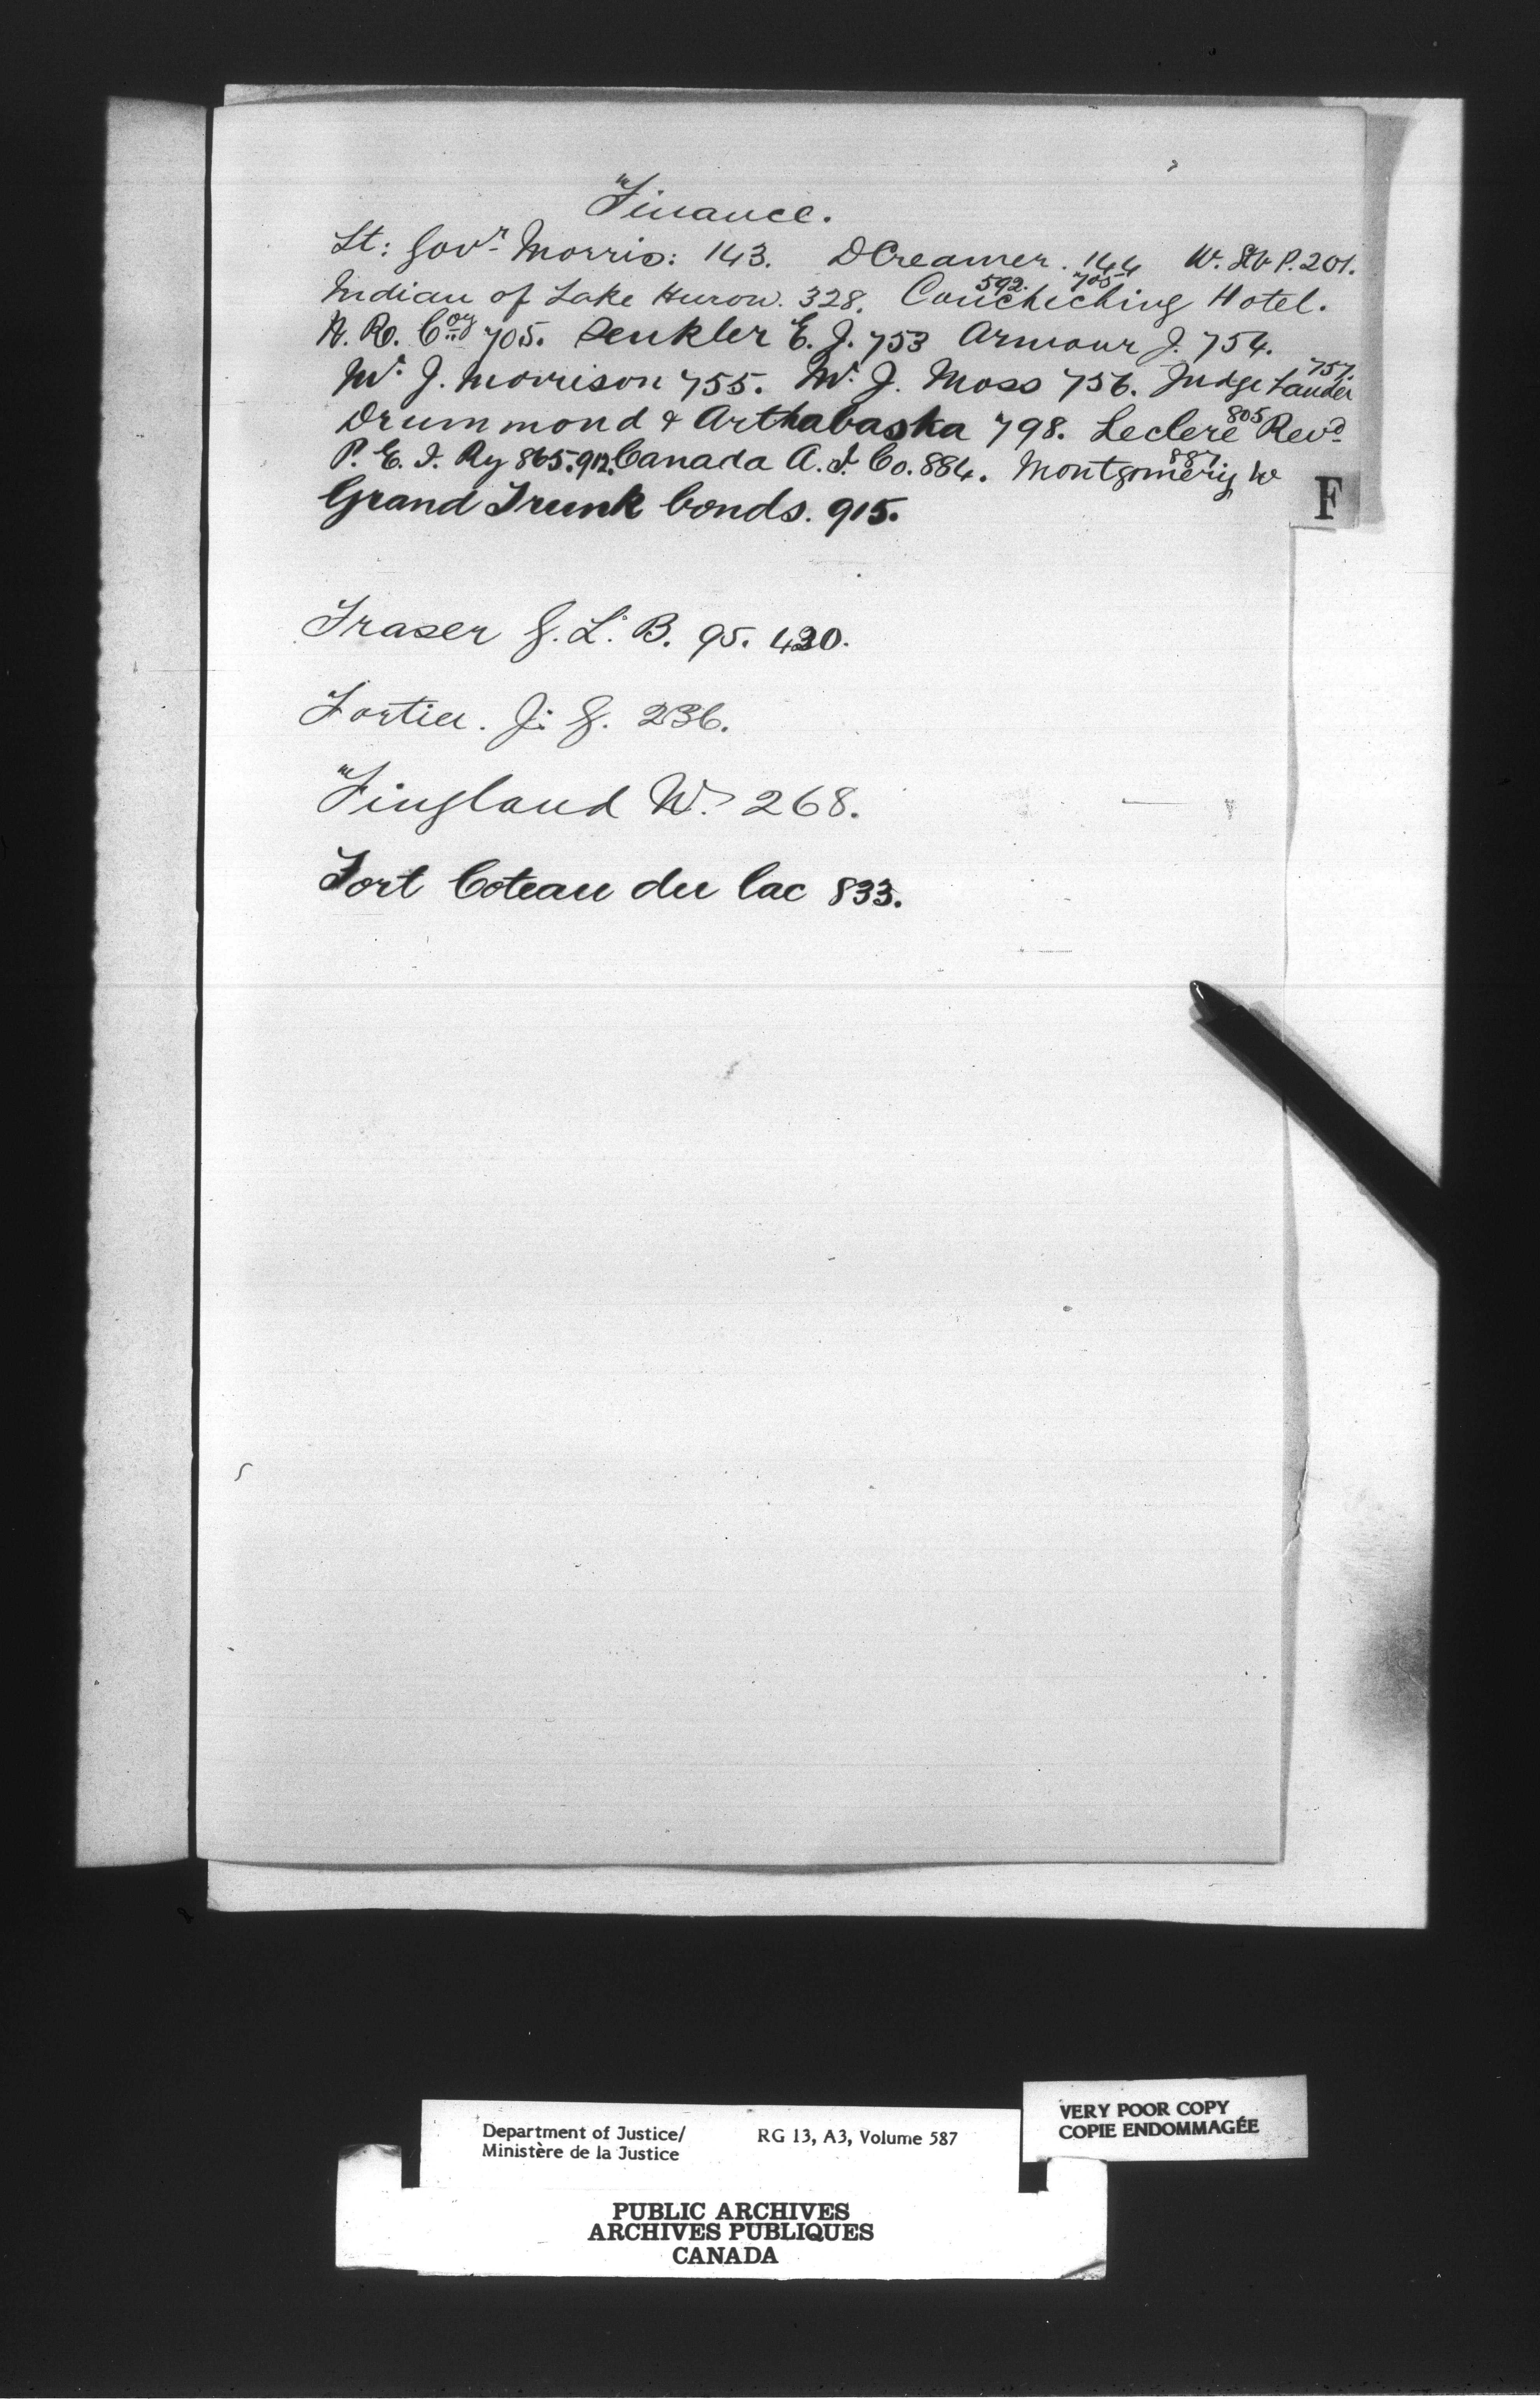 Finance.
Lt: Govr Morris: 143. D Creamer. 144 W. & P. 201.
592. 705
Indian of Lake Huron. 328. Couchiching Hotel.
N. R. Coy 705. Senkler E. J. 753 Armour J. 754.
757.
Mr J. Morrison 755. Mr J. Moss 756. Judge Lauder
805
Drummond & Arthabaska 798. Leclere Revd
887
P. E. I. Ry 865. 912. Canada A. I. Co. 884. Montgomery W
Grand Trunk bonds. 915.
F
Fraser G. L. B. 95. 430.
Fortier. J: G. 236.
Fingland W. 268.
Fort Coteau du lac 833.
Department of Justice/ RG 13, A3, Volume 587
Ministère de la Justice
VERY POOR COPY
COPIE ENDOMMAGÉE
PUBLIC ARCHIVES
ARCHIVES PUBLIQUES
CANADA